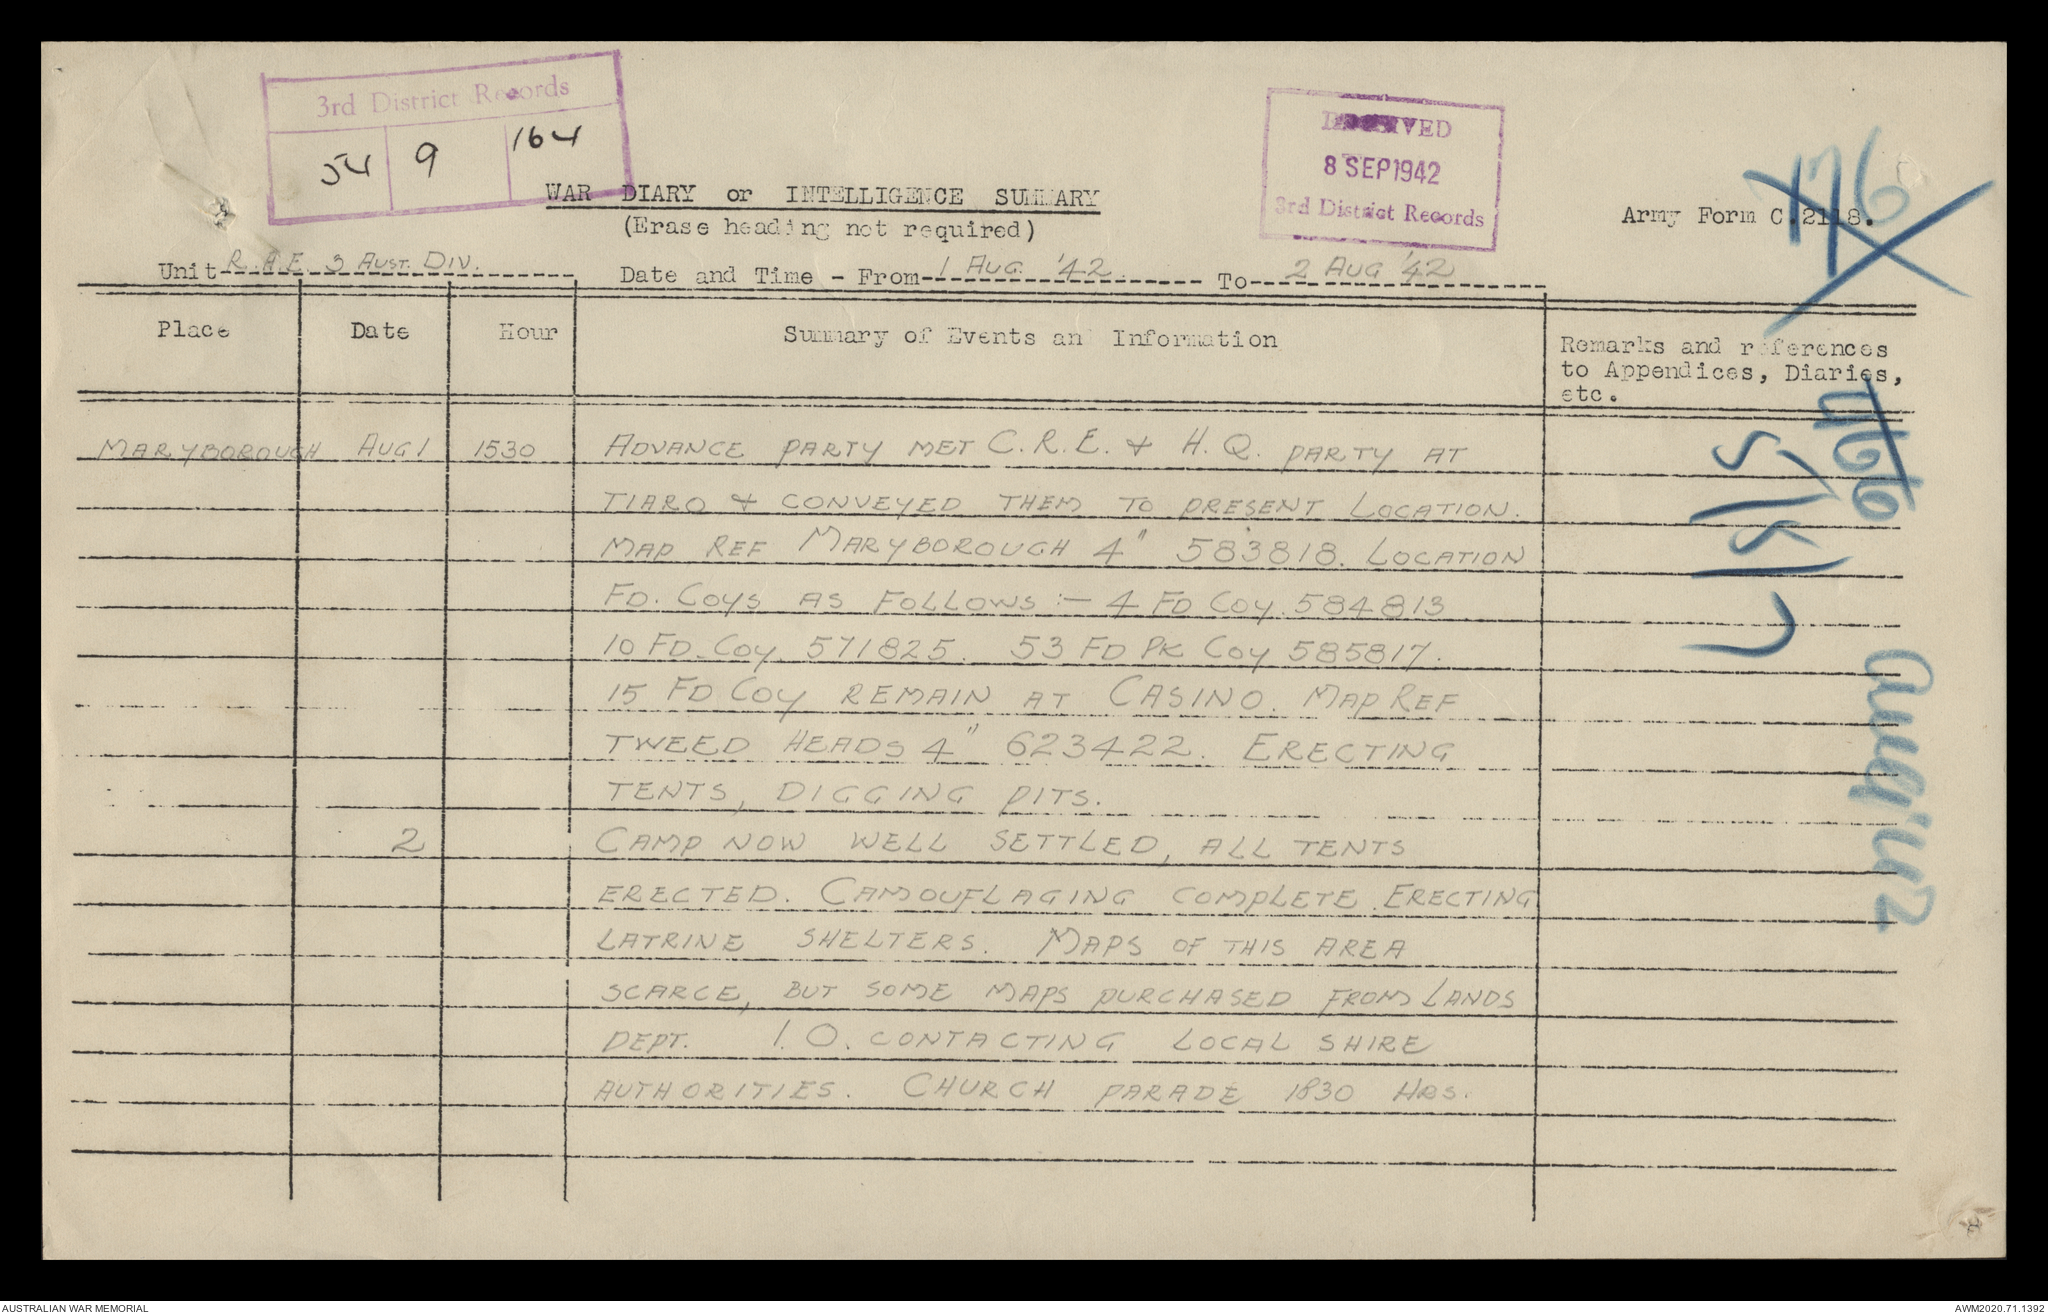 3rd District Records
54 9 164
RECEIVED
8 SEP 1942
3rd District Records
WAR DIARY or INTELLIGENCE SUMMARY
(Erase heading not required)
Army Form C.2118.
176
Unit R.A.E. 3 AUST. DIV. Date and Time - From 1 AUG '42 To 2 AUG '42
Place Date Hour Summary of Events and Information Remarks and references
to Appendices, Diaries,
etc.
MARYBOROUGH AUG 1 1530 ADVANCE PARTY MET C.R.E. & H.Q. PARTY AT
TIARO & CONVEYED THEM TO PRESENT LOCATION.
MAP REF MARYBOROUGH 4" 583818. LOCATION
FD. COYS AS FOLLOWS :- 4 FD COY. 584813
10 FD. COY. 571825. 53 FD PK COY 585817.
15 FD COY REMAIN AT CASINO. MAP REF
TWEED HEADS 4" 623422. ERECTING
TENTS, DIGGING PITS.
2 CAMP NOW WELL SETTLED, ALL TENTS
ERECTED. CAMOUFLAGING COMPLETE. ERECTING
LATRINE SHELTERS. MAPS OF THIS AREA
SCARCE, BUT SOME MAPS PURCHASED FROM LANDS
DEPT. I.O. CONTACTING LOCAL SHIRE
AUTHORITIES. CHURCH PARADE 1830 HRS.
5/5/7
AUSTRALIAN WAR MEMORIAL
AWM2020.71.1392